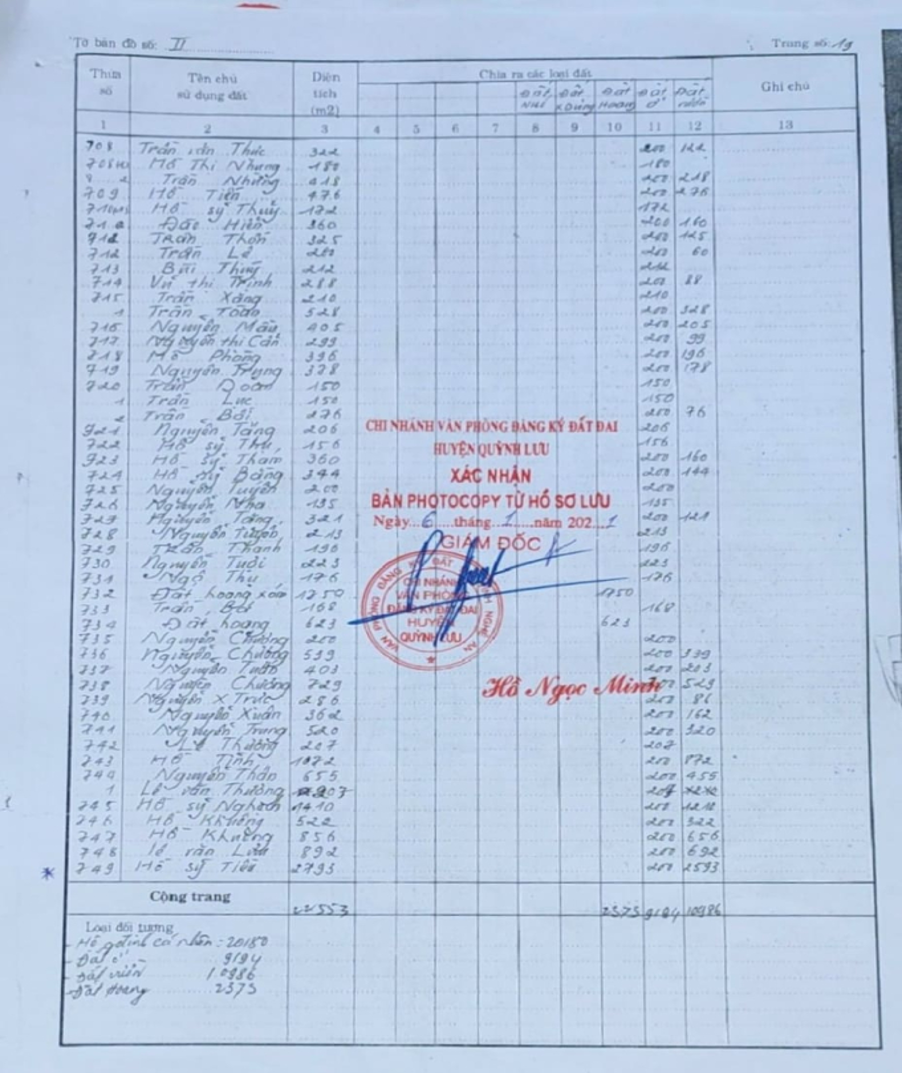 Tờ bản đồ số: II Trang số: 19
Thửa số Tên chủ sử dụng đất Diện tích (m2) Chia ra các loại đất Ghi chú
Đất Đất X Dựng Đất Hoang Đất ở Đất vườn
1 2 3 4 5 6 7 8 9 10 11 12 13
708 Trần văn Thức 322 200 122
Hồ Thị Nhung 180 180
Trần Nhường 418 200 218
709 Hồ Tiến 476 200 276
Hồ sỹ Thuỷ 172 172
Đào Hiền 360 200 160
Trần Thọn 325 200 125
712 Trần Lê 60
713 Bùi Thuý 212 212
714 Vũ thị Trinh 288 200 88
715 Trần Xáng 210 210
1 Trần Toàn 528 200 328
716 Nguyễn Mậu 405 200 205
717 Nguyễn thị Cần 299 200 99
718 Hồ Phòng 396 200 196
719 Nguyễn Trung 378 200 178
720 Trần 150 150
1 Trần Lục 150 150
2 Trần 276 200 76
721 Nguyễn Tăng 206 206
722 Hồ sỹ Thu 156 156
723 Hồ sỹ Tham 360 200 160
724 Hồ sỹ Bảng 344 200 144
725 Nguyễn Tuyên 200 200
726 Nguyễn Nha 195 195
727 Nguyễn Tăng 321 200 121
728 Nguyễn 213 213
729 Trần Thanh 196 196
730 Nguyễn Tuổi 223 223
731 Ngô Thu 176 176
732 Đất hoang xóm 1750 1750
733 Trần 168 168
734 Đất hoang 623 623
735 Nguyễn Chường 200 200
736 Nguyễn Chường 539 200 339
737 Nguyễn Tuấn 403 200 203
738 Nguyễn Chường 729 200 529
739 Nguyễn X Trức 286 200 86
740 Nguyễn Xuân 362 200 162
741 Nguyễn Trung 520 200 320
742 Lê Thường 207 207
743 Hồ Tỉnh 1072 200 872
744 Nguyễn Thân 655 200 455
1 Lê văn Thường 207
745 Hồ sỹ Nghinh 1410 200 1210
746 Hồ Khương 522 200 322
747 Hồ Khương 856 200 656
748 lê văn Lưu 892 200 692
* 749 Hồ sỹ Tiến 2793 200 2593
CHI NHÁNH VĂN PHÒNG ĐĂNG KÝ ĐẤT ĐAI
HUYỆN QUỲNH LƯU
XÁC NHẬN
BẢN PHOTOCOPY TỪ HỒ SƠ LƯU
Ngày 6 tháng 1 năm 2021
GIÁM ĐỐC
CHI NHÁNH
VĂN PHÒNG
ĐĂNG KÝ ĐẤT ĐAI
HUYỆN
QUỲNH LƯU
Hồ Ngọc Minh
Cộng trang 22553 2373 9194 10986
Loại đối tượng
- Hộ gđình cá nhân: 20180
- Đất ở 9194
- Đất vườn 10986
- Đất hoang 2373